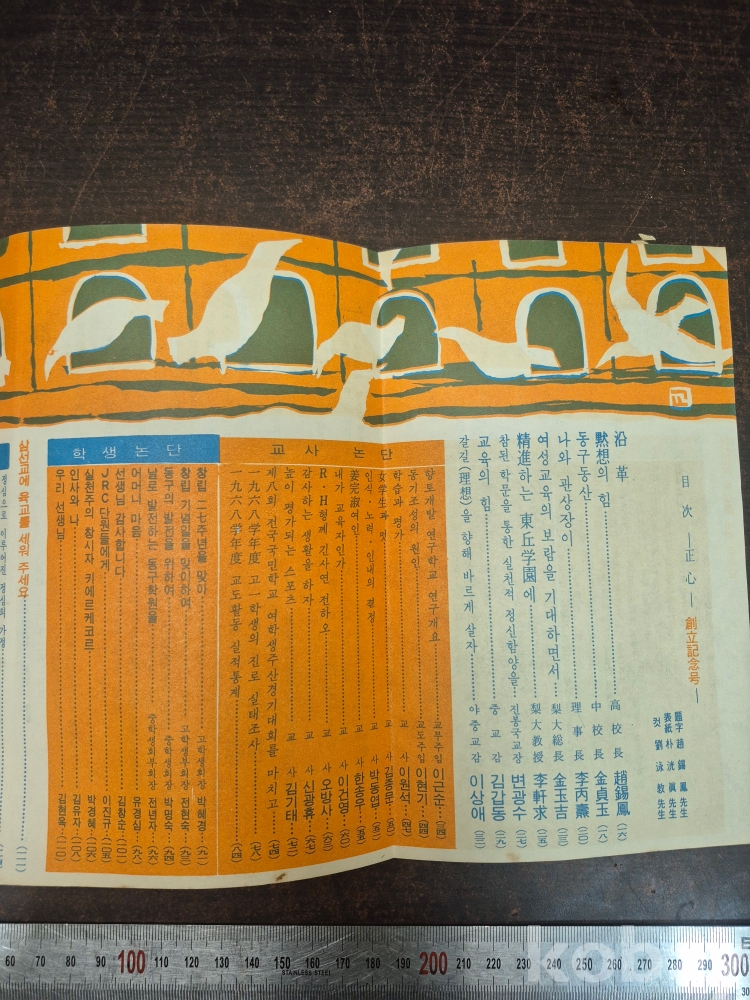 目次 ―正心― 創立記念号―
題字 趙錫鳳 先生
表紙 朴洸眞 先生
컷 劉泳敎 先生
沿革
默想의 힘 高校長 趙錫鳳 (六)
동구동산 中校長 金貞玉 (一八)
나와 관상장이 理事長 李丙燾 (二〇)
여성교육의 보람을 기대하면서 梨大総長 金玉吉 (二二)
精進하는 東丘学園에 梨大教授 李軒求 (二五)
참된 학문을 통한 실천적 정신함양을 진통국교장 변광수 (二七)
교육의 힘 중교감 김갑동 (二九)
갈길(理想)을 향해 바르게 살자 야중교감 이상애 (三二)
교사 논단
향토개발 연구학교 연구개요 교무주임 이근순 (三四)
동기조성의 원인 교도주임 이현기 (四四)
학습과 평가 교사 이원석 (四七)
女学生과 멋 교사 김종문 (五一)
인식·노력·인내의 결정 교사 박동엽
姜完淑여인 교사 한송우 (五五)
내가 교육자인가 교사 이건영 (六〇)
R·H형께 김사연 전하오 교사 오방사 (六三)
감사하는 생활을 하자 교사 신광휴 (六七)
높이 평가되는 스포츠 교사 김기태 (七二)
제八회 전국국민학교 여학생주산경기대회를 마치고
一九六八学年度 고一학생의 진로 실태조사 (七八)
一九六八学年度 교도활동 실적통계 (八四)
학생논단
창립 二七주년을 맞아 고학생회장 박혜경 (九一)
창립 기념일을 맞이하여 고학생부회장 전현숙 (九三)
동구의 발전을 위하여 중학생회장 박명숙 (九四)
날로 발전하는 동구학원을 중학생부회장 전년자 (九六)
어머니 마음 유경심 (九八)
선생님 감사합니다 김창순 (一〇一)
JRC 단원들에게 이진규 (一〇五)
실존주의 창시자 키에르케고르 박경혜 (一〇六)
인사와 나 김유자 (一〇八)
우리 선생님 김현옥 (一一〇)
삼선교에 육교를 세워 주세요 (一一一)
60 70 80 90 100 110 120 130 140 150 160 170 180 190 200 210 220 230 240 250 260 270 280 290 300
STAINLESS STEEL